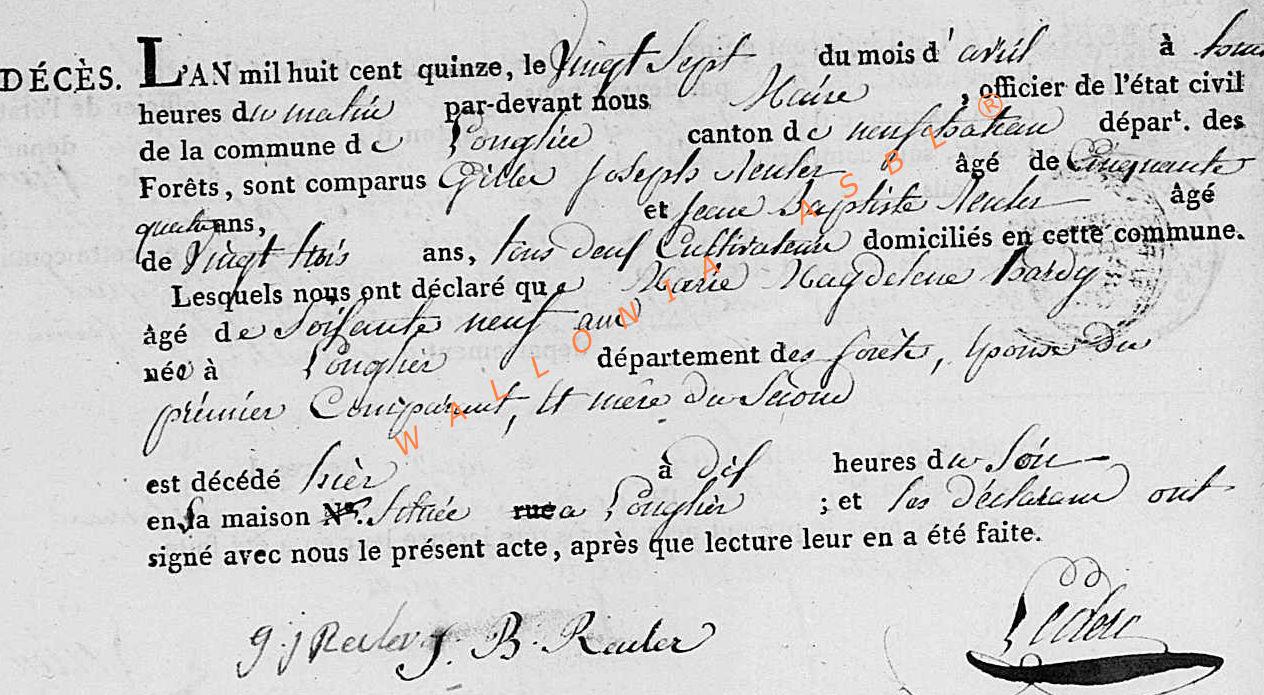 DÉCÈS. L'AN mil huit cent quinze, le Vingt Sept du mois d'avril à
heures du matin par-devant nous Maire, officier de l'état civil
de la commune de Longlier canton de neufchateau départ. des
Forêts, sont comparus Gilles Joseph Reuler âgé de Cinquante
quatre ans, et Jean Baptiste Reuler âgé
de Vingt trois ans, tous deux Cultivateurs domiciliés en cette commune.
Lesquels nous ont déclaré que Marie Magdelene hardy
âgé de Soisante neuf ans
née à Longlier département des forêts, Epouse du
prémier Comparant, Et mère du Second
est décédé hièr à dix heures du Soir
en sa maison N°. Située rue a Longlièr ; et les déclarans ont
signé avec nous le présent acte, après que lecture leur en a été faite.
g. j Reuler J. B. Reuler
WALLONIA ASBL ®